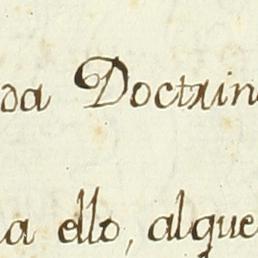 da Doctrin
a ello, alque